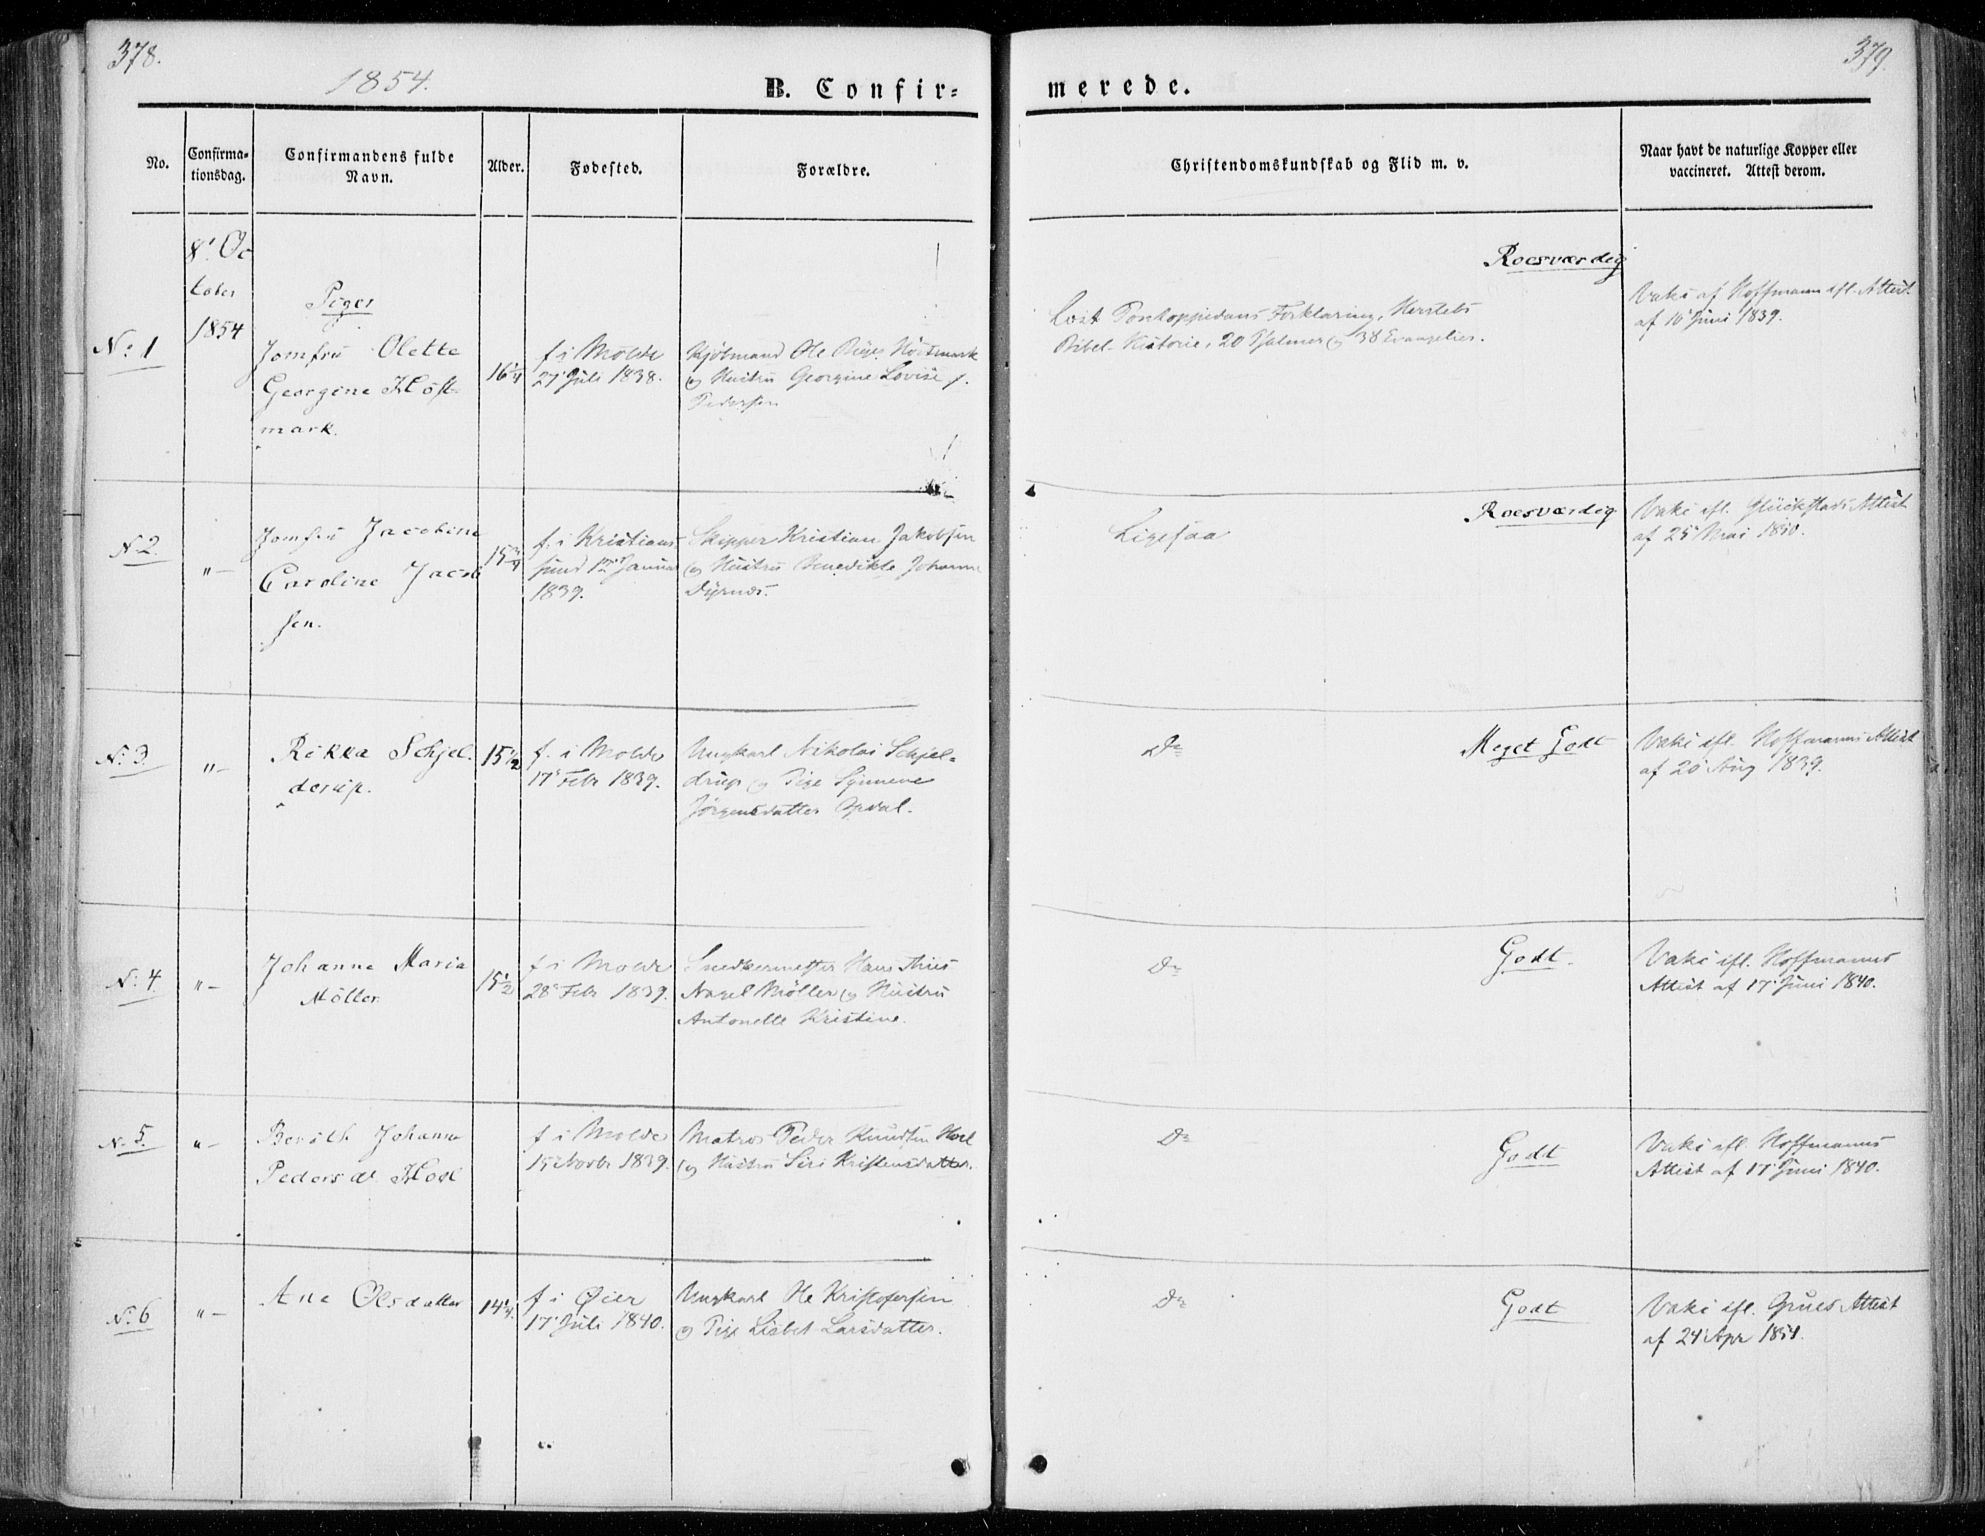 378.
1854.
B. Confir=
merede.
379.
No.
Confirma=
tionsdag.
Confirmandens fulde
Navn.
Alder.
Fødested.
Forældre.
Christendomskundskab og Flid m. v.
Naar havt de naturlige Kopper eller
vaccineret. Attest derom.
8' Oc
tober
1854
Piger
No 1
Jomfru Olette
Georgine Höst
mark.
16 1/4
f i Molde
27' Juli 1838.
Kjöbmand Ole Höstmark
og Hustru Georgine Lovise f.
Pedersen
Roesværdig
Læst Pontoppidans Forklaring, Herslebs
Bibel-Historie, 20 Psalmer og 38 Evangelier.
Vaks af Hoffmann ifl. Attest
af 16' Juni 1839.
No 2
"—
Jomfru Jacobine
Caroline Jacob
sen.
15 3/4
f. i Kristians
sund 12' Januar
1839.
Skipper Kristian Jakobsen
og Hustru Benedikte Johanne
Dyrnes.
Ligesaa
Roesværdig
Vaks ifl. Glückstads Attest
af 25' Mai 1850.
No 3
"—
Rikka Schjel
derup.
15 1/2
f. i Molde
17' Febr 1839.
Ungkarl Nikolai Schjel=
drup og Pige Synneve
Jörgensdatter Opdal.
Do
Meget Godt
Vaks ifl. Hoffmanns Attest
af 20' Aug 1839.
No 4
"—
Johanne Maria
Möller
15 1/2
f i Molde
28' Febr 1839.
Snedkermester Hans Thiis
Nagel Möller og Hustru
Antonette Kristine.
Do
Godt.
Vaks ifl. Hoffmanns
Attest af 17' Juni 1840.
No 5.
"—
Berith Johanne
Pedersdt Hoel
f i Molde
15' Novbr 1839.
Matros Peder Knudsen Hoel
og Hustru Siri Kristensdatter.
Do
Godt
Vaks ifl. Hoffmanns
Attest af 17' Juni 1840.
No 6
"—
Ane Olsdatter
14 1/4
f i Øier
17' Juli 1840.
Ungkarl Ole Kristofersen
og Pige Lisbet Larsdatter.
Do
Godt
Vaks ifl. Grues Attest
af 24' Apr 1854.